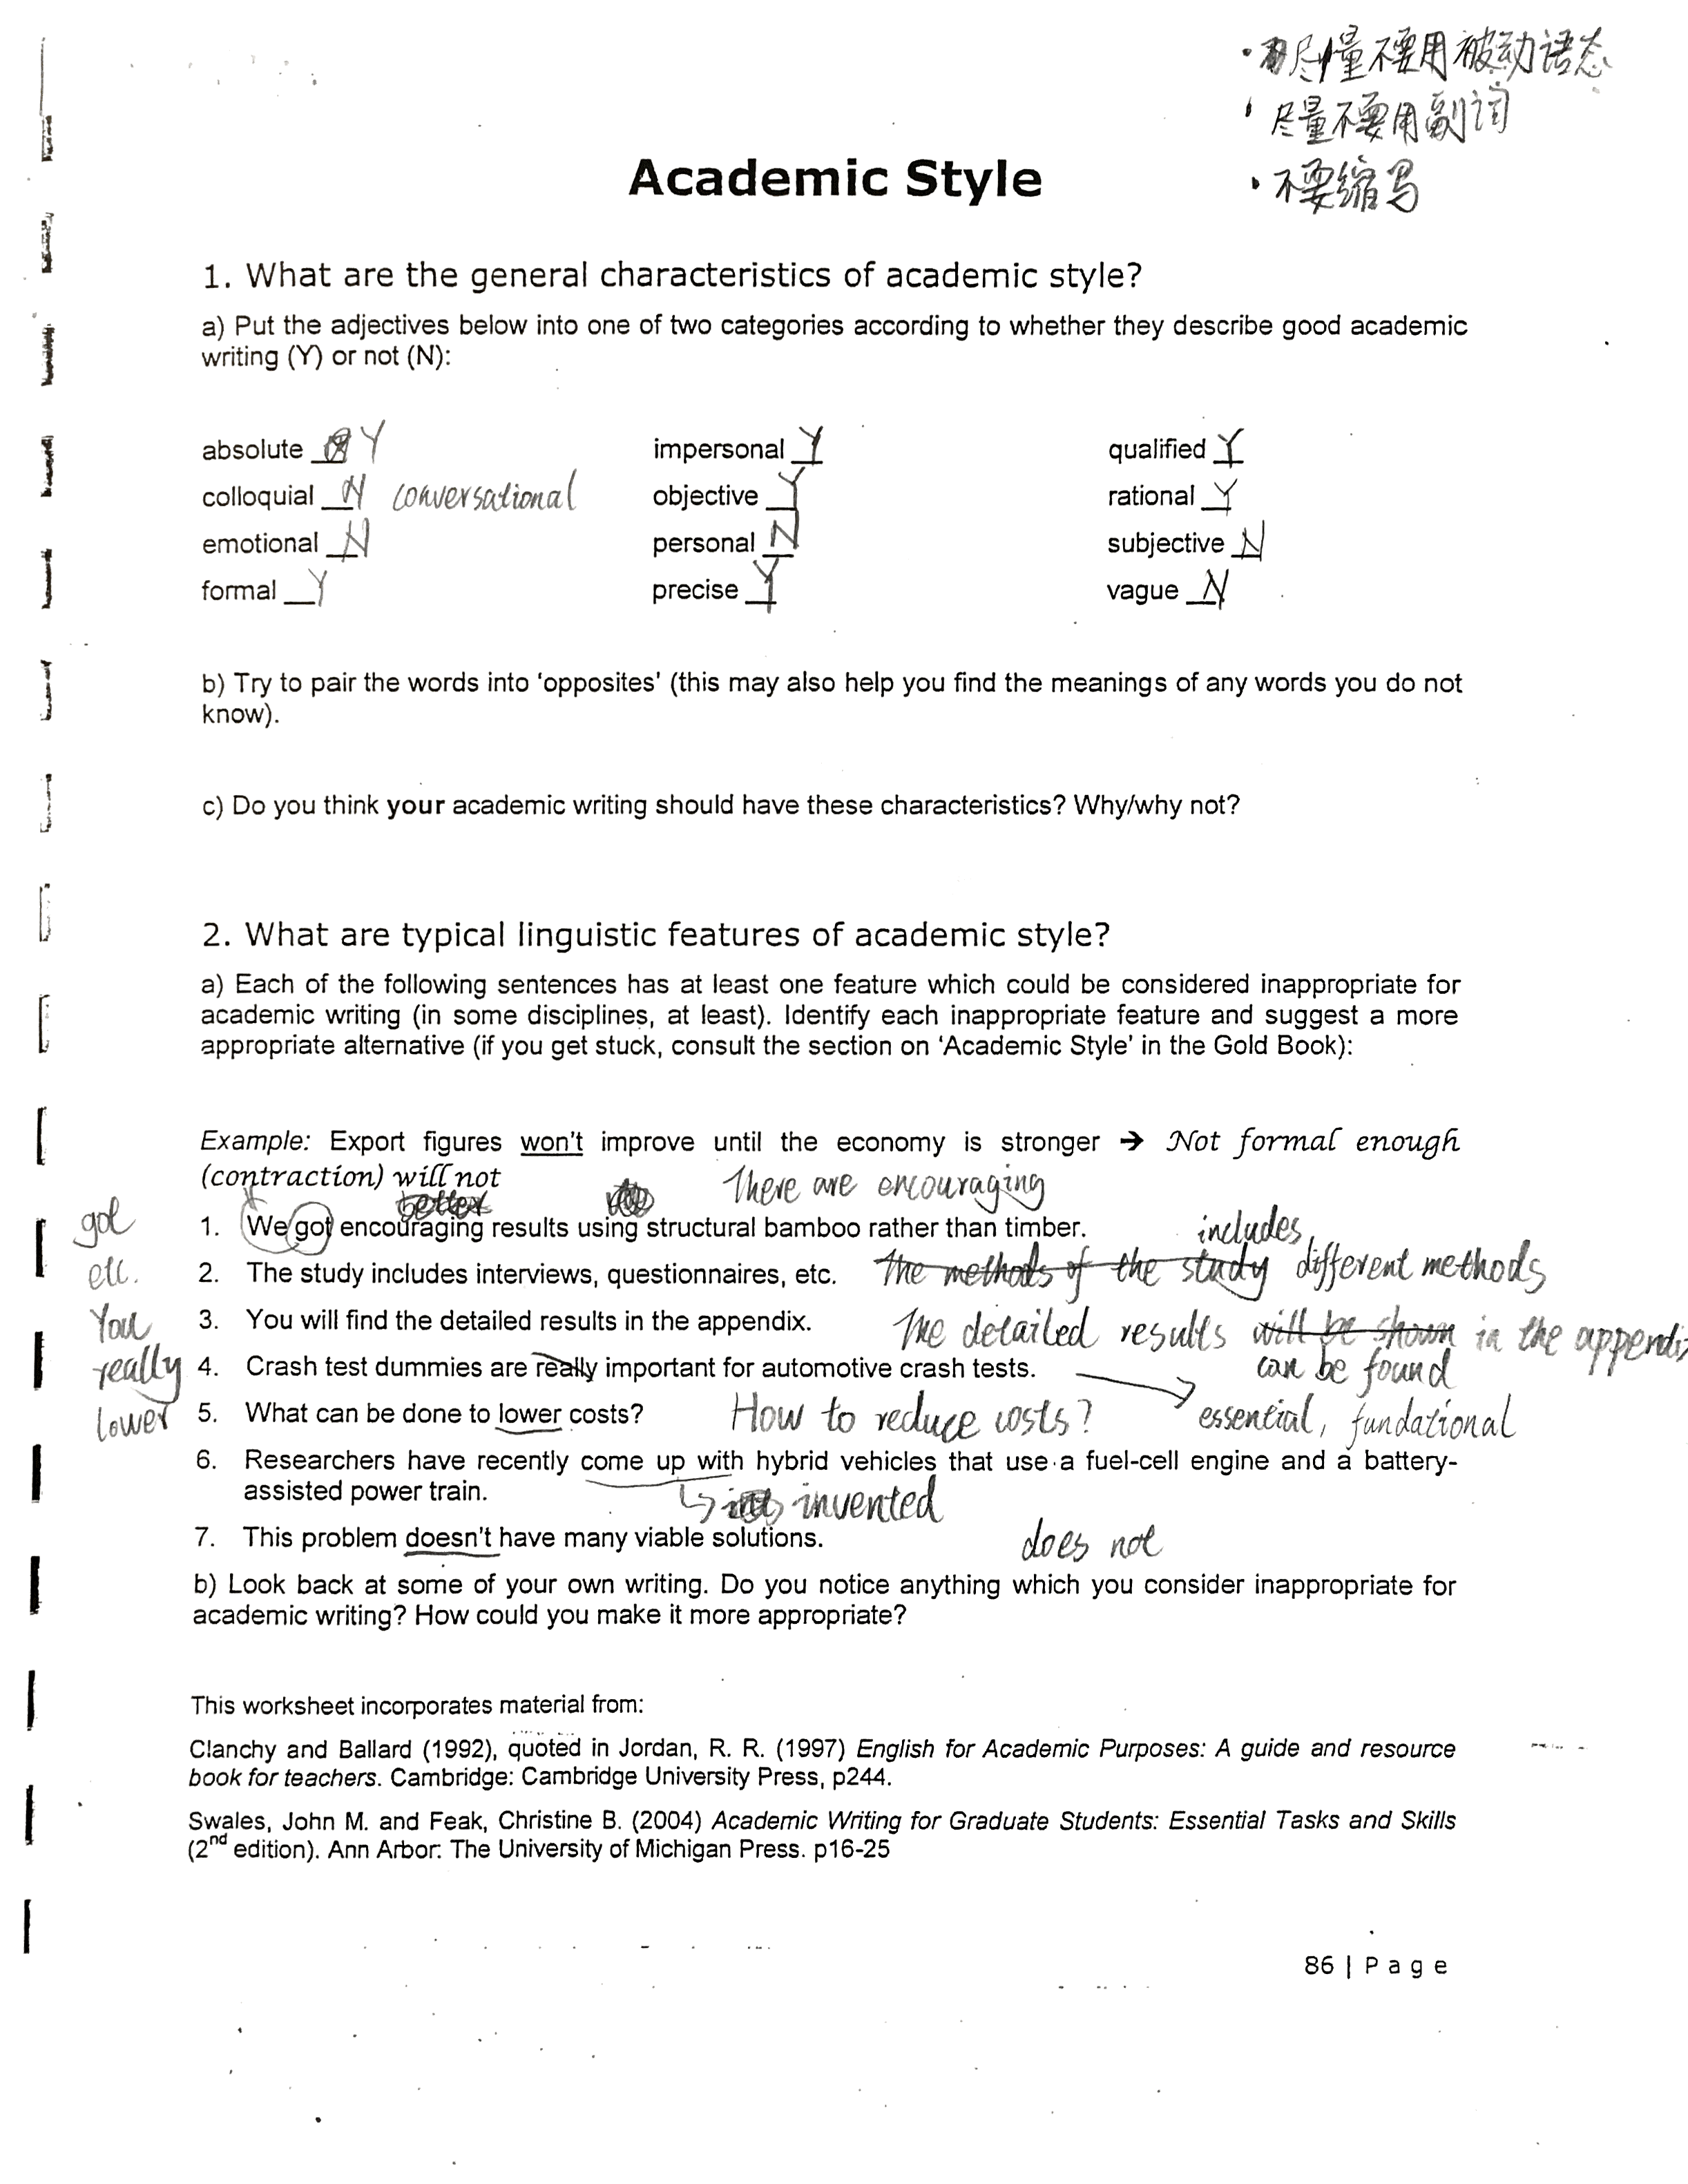 ·尽量不要用被动语态
· 尽量不要用副词
· 不要缩写
Academic Style
1. What are the general characteristics of academic style?
a) Put the adjectives below into one of two categories according to whether they describe good academic
writing (Y) or not (N):
absolute __ Y
impersonal Y
qualified Y
colloquial N conversational
objective Y
rational Y
emotional N
personal N
subjective N
formal Y
precise Y
vague N
b) Try to pair the words into ‘opposites’ (this may also help you find the meanings of any words you do not
know).
c) Do you think your academic writing should have these characteristics? Why/why not?
2. What are typical linguistic features of academic style?
a) Each of the following sentences has at least one feature which could be considered inappropriate for
academic writing (in some disciplines, at least). Identify each inappropriate feature and suggest a more
appropriate alternative (if you get stuck, consult the section on ‘Academic Style’ in the Gold Book):
Example: Export figures won't improve until the economy is stronger → Not formal enough
(contraction) will not
better
There are encouraging
got
1. We got encouraging results using structural bamboo rather than timber.
includes
etc.
2. The study includes interviews, questionnaires, etc. The methods of the study different methods
You
3. You will find the detailed results in the appendix. The detailed results will be shown in the appendix
really
4. Crash test dummies are really important for automotive crash tests. can be found
lower
5. What can be done to lower costs? How to reduce costs? essential, fundational
6. Researchers have recently come up with hybrid vehicles that use a fuel-cell engine and a battery-
assisted power train.
invented
7. This problem doesn't have many viable solutions. does not
b) Look back at some of your own writing. Do you notice anything which you consider inappropriate for
academic writing? How could you make it more appropriate?
This worksheet incorporates material from:
Clanchy and Ballard (1992), quoted in Jordan, R. R. (1997) English for Academic Purposes: A guide and resource
book for teachers. Cambridge: Cambridge University Press, p244.
Swales, John M. and Feak, Christine B. (2004) Academic Writing for Graduate Students: Essential Tasks and Skills
(2nd edition). Ann Arbor: The University of Michigan Press. p16-25
86 | Page